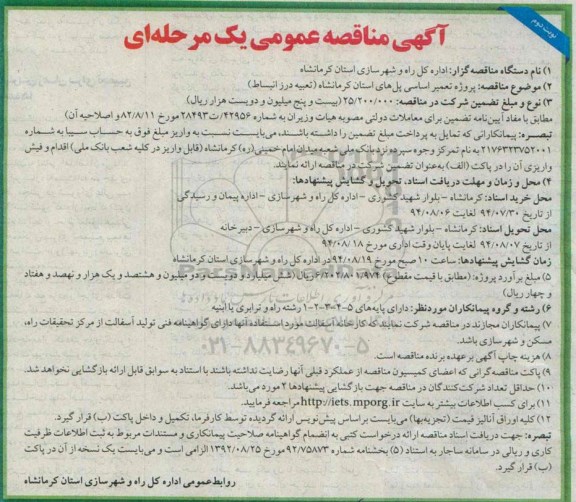 نوبت دوم
آگهی مناقصه عمومی یک مرحله‌ای
۱) نام دستگاه مناقصه گزار: اداره کل راه و شهرسازی استان کرمانشاه
۲) موضوع مناقصه: پروژه تعمیر اساسی پل‌های استان کرمانشاه (تعبیه درز انبساط)
۳) نوع و مبلغ تضمین شرکت در مناقصه: ۲۵/۲۰۰/۰۰۰ (بیست و پنج میلیون و دویست هزار ریال)
مطابق با مفاد آیین‌نامه تضمین برای معاملات دولتی مصوبه هیات وزیران به شماره ۴۲۹۵۶/ت۲۸۴۹۳ مورخ ۸۲/۸/۱۱ و اصلاحیه آن)
تبصره: پیمانکارانی که تمایل به پرداخت مبلغ تضمین را داشته باشند، می‌بایست نسبت به واریز مبلغ فوق به حساب سیبا به شماره
۲۱۷۶۳۲۳۷۵۲۰۰۱ به نام تمرکز وجوه سپرده نزد بانک ملی شعبه میدان امام خمینی (ره) کرمانشاه (قابل واریز در کلیه شعب بانک ملی) اقدام و فیش
واریزی آن را در پاکت (الف) به‌عنوان تضمین شرکت در مناقصه ارائه نمایند.
۴) محل و زمان و مهلت دریافت اسناد، تحویل و گشایش پیشنهادها:
محل خرید اسناد: کرمانشاه - بلوار شهید کشوری - اداره کل راه و شهرسازی - اداره پیمان و رسیدگی
از تاریخ ۹۴/۰۷/۳۰ لغایت ۹۴/۰۸/۰۶
محل تحویل اسناد: کرمانشاه - بلوار شهید کشوری - اداره کل راه و شهرسازی - دبیرخانه
از تاریخ ۹۴/۰۸/۰۷ لغایت پایان وقت اداری مورخ ۹۴/۰۸/۱۸
زمان گشایش پیشنهادها: ساعت ۱۰ صبح مورخ ۹۴/۰۸/۱۹ در اداره کل راه و شهرسازی استان کرمانشاه
۵) مبلغ برآورد پروژه: (مطابق با قیمت مقطوع) ریال (شش میلیارد و دویست و دو میلیون و هشتصد و یک هزار و نهصد و هفتاد
و چهار ریال)
۶) رشته و گروه پیمانکاران موردنظر: دارای پایه‌های ۵-۴-۳-۲-۱ رشته راه و ترابری یا ابنیه
۷) پیمانکاران مجازند در مناقصه شرکت نمایند که کارخانه آسفالت مورد استفاده آنها دارای گواهینامه فنی تولید آسفالت از مرکز تحقیقات راه،
مسکن و شهرسازی باشد.
۸) هزینه چاپ آگهی برعهده برنده مناقصه است.
۹) پاکت مناقصه گرانی که اعضای کمیسیون مناقصه از عملکرد قبلی آنها رضایت نداشته باشند با استناد به سوابق قابل ارائه بازگشایی نخواهد شد.
۱۰) حداقل تعداد شرکت‌کنندگان در مناقصه جهت بازگشایی پیشنهادها ۲ مورد می‌باشد.
۱۱) برای کسب اطلاعات بیشتر به سایت http://iets.mporg.ir مراجعه فرمایید.
۱۲) کلیه اوراق آنالیز قیمت (تجزیه‌بها) می‌بایست براساس پیش‌نویس ارائه گردیده توسط کارفرما، تکمیل و داخل پاکت (ب) قرار گیرد.
تبصره: جهت دریافت اسناد مناقصه ارائه درخواست کتبی به انضمام گواهینامه صلاحیت پیمانکاری و مستندات مربوط به ثبت اطلاعات ظرفیت
کاری و ریالی در سامانه ساجار به استناد (۵) بخشنامه شماره ۹۲/۷۵۸۷۳ مورخ ۱۳۹۲/۰۸/۲۵ الزامی است و می‌بایست یک نسخه از آن در پاکت
(ب) قرار گیرد.
روابط عمومی اداره کل راه و شهرسازی استان کرمانشاه
۰۲۱-۸۸۳۴۹۶۷۰-۵